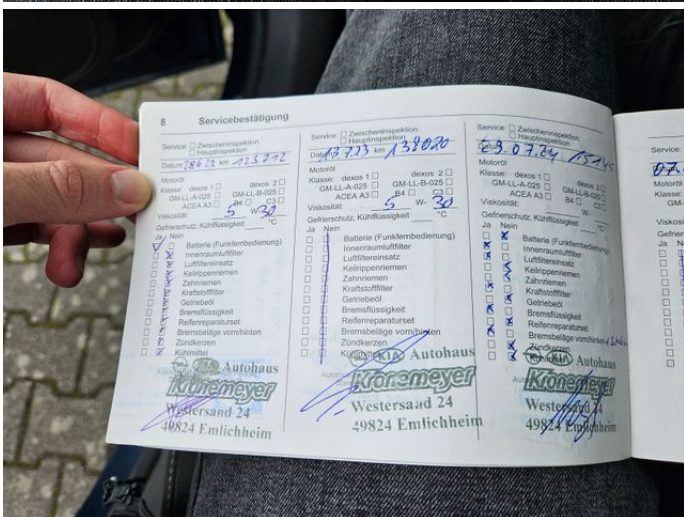 8 Servicebestätigung
Service: Zwischeninspektion
Hauptinspektion
Datum 28.6.22 km 123912
Motoröl
Klasse: dexos 1 dexos 2
GM-LL-A-025 GM-LL-B-025
ACEA A3 B4 C3
Viskosität: 5 W- 30
Gefrierschutz, Kühlflüssigkeit °C
Ja Nein
Batterie (Funkfernbedienung)
Innenraumluftfilter
Luftfiltereinsatz
Keilrippenriemen
Zahnriemen
Kraftstofffilter
Getriebeöl
Bremsflüssigkeit
Reifenreparaturset
Bremsbeläge vorn/hinten
Zündkerzen
Kühlmittel
KIA Autohaus
Kronemeyer
Westersand 24
49824 Emlichheim
Service: Zwischeninspektion
Hauptinspektion
Datum 13.7.23 km 138020
Motoröl
Klasse: dexos 1 dexos 2
GM-LL-A-025 GM-LL-B-025
ACEA A3 B4 C3
Viskosität: 5 W- 30
Gefrierschutz, Kühlflüssigkeit °C
Ja Nein
Batterie (Funkfernbedienung)
Innenraumluftfilter
Luftfiltereinsatz
Keilrippenriemen
Zahnriemen
Kraftstofffilter
Getriebeöl
Bremsflüssigkeit
Reifenreparaturset
Bremsbeläge vorn/hinten
Zündkerzen
KIA Autohaus
Kronemeyer
Westersand 24
49824 Emlichheim
Service: Zwischeninspektion
Hauptinspektion
07.24
Motoröl
Klasse: dexos 1 dexos 2
GM-LL-A-025 GM-LL-B-025
ACEA A3 B4 C3
Viskosität: 5 W- 30
Gefrierschutz, Kühlflüssigkeit °C
Ja Nein
Batterie (Funkfernbedienung)
Innenraumluftfilter
Luftfiltereinsatz
Keilrippenriemen
Zahnriemen
Kraftstofffilter
Getriebeöl
Bremsflüssigkeit
Reifenreparaturset
Bremsbeläge vorn/hinten
Zündkerzen
KIA Autohaus
Kronemeyer
Westersand 24
49824 Emlichheim
Service:
07.
Motoröl
Klasse:
GM-
Ja